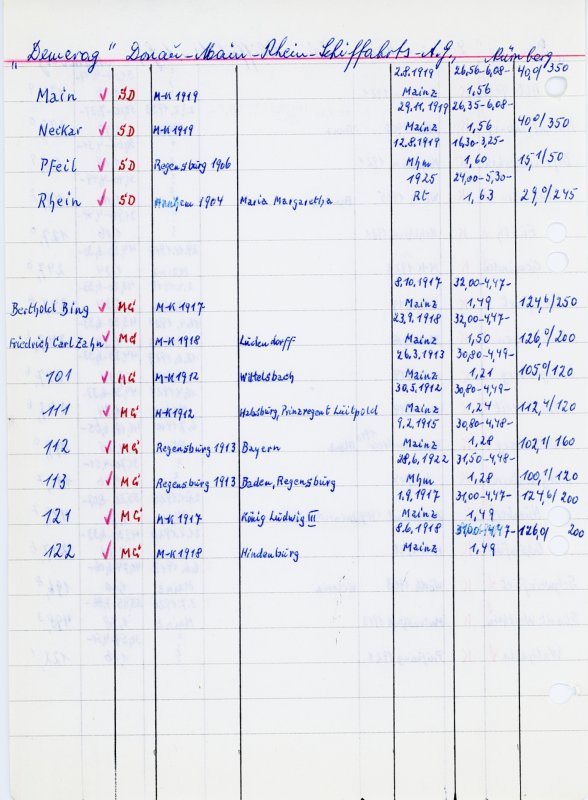 "Demerag" Donau-Main-Rhein-Schiffahrts-A.G., Nürnberg
2.8.1919 26,56-6,08- 40,0/350
Main ✓ SD M-K 1919 Mainz 1,56
29.11.1919 26,35-6,08-
Neckar ✓ SD M-K 1919 Mainz 1,56 40,0/350
12.8.1919 16,30-3,25-
Pfeil ✓ SD Regensburg 1906 Mhm 1,60 15,1/50
1925 24,00-5,30-
Rhein ✓ SD 1904 Maria Margaretha Rt 1,63 29,0/245
8.10.1917 32,00-4,47-
Berthold Bing ✓ MG M-K 1917 Mainz 1,49 124,6/250
23.9.1918 32,00-4,47-
Friedrich Carl Zahn ✓ MG M-K 1918 Ludendorff Mainz 1,50 126,9/200
26.3.1913 30,80-4,49-
101 ✓ MG M-K 1912 Wittelsbach Mainz 1,21 105,0/120
30.5.1912 30,80-4,49-
111 ✓ MG M-K 1912 Habsburg, Prinzregent Luitpold Mainz 1,24 112,4/120
9.2.1915 30,80-4,48-
112 ✓ MG Regensburg 1913 Bayern Mainz 1,28 102,1/160
28.6.1922 31,50-4,48-
113 ✓ MG Regensburg 1913 Baden, Regensburg Mhm 1,28 100,1/120
1.9.1917 31,00-4,47- 124,6/200
121 ✓ MG M-K 1917 König Ludwig III Mainz 1,49
8.6.1918 31,00-4,47- 126,0/ 200
122 ✓ MG M-K 1918 Hindenburg Mainz 1,49